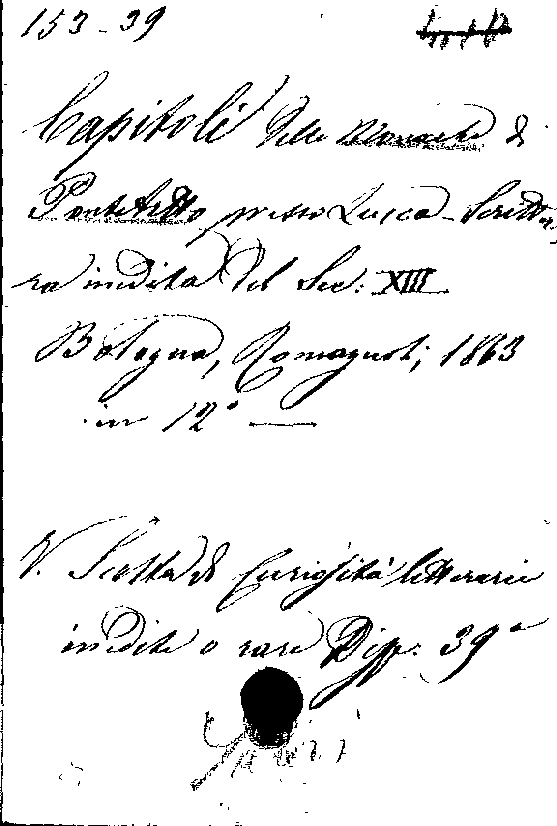 153-39
Capitoli delle Monache di
Pontetetto, presso Lucca - Scrittu-
ra inedita del Sec: XIII
Bologna, Romagnoli, 1863
in 12° —
V. Scelta di Curiosità letterarie
inedite o rare Disp: 39ª